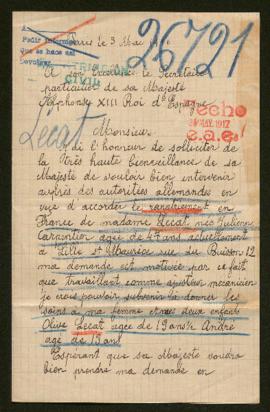 Paris le 3 Mai
26721
A son Excellence le Secrétaire
particulier de sa Majesté
Alphonse XIII Roi d'Espagne
echo
MAY. 1917
c.a.e.
Lecat
Monsieur
J'ai l'honneur de solliciter de
la très haute bienveillance de sa
Majesté de vouloir bien intervenir
auprès des autorités allemandes en
vue d'accorder le rapatriement en
France de madame Lecat, née Julienne
Carpentier agee de 47 ans actuellement
à Lille St Maurice rue du Buisson 12
ma demande est motivée par ce fait
que travaillant comme ajusteur mecanicien
je crois pouvoir subvenir la donner les
soins à ma femme et mes deux enfants
Olive Lecat agee de 19 ans ½ André
age de 13 ans
Esperant que sa Majesté voudra
bien prendre ma demande en